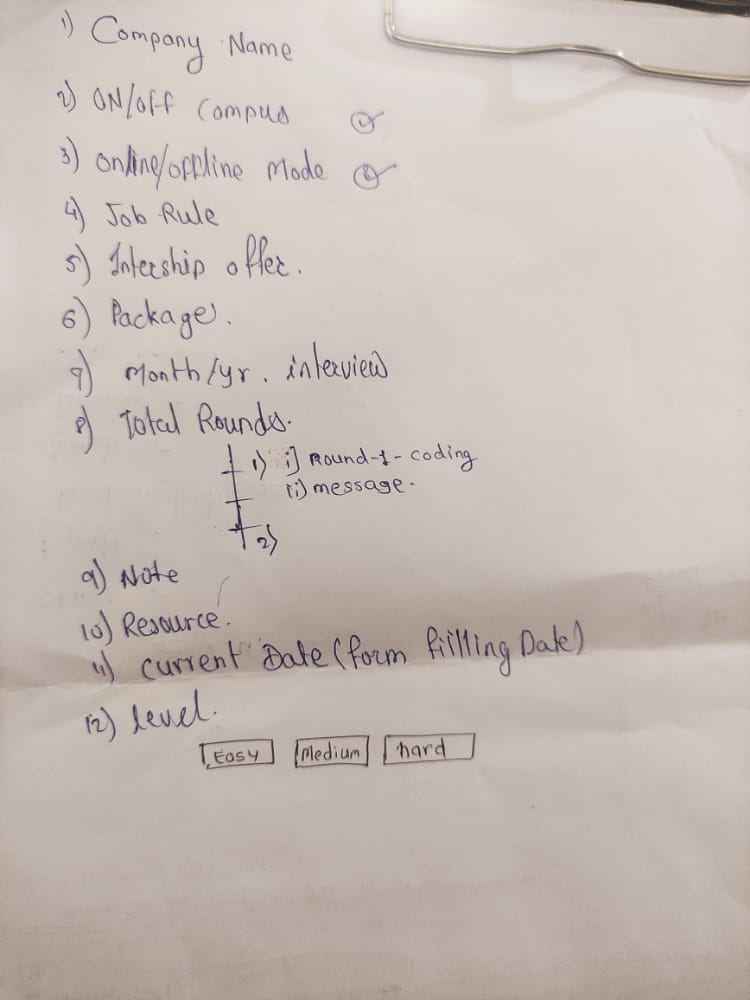 1) Company Name
2) ON/OFF Compus
3) Online/offline Mode
4) Job Rule
5) Intership offer.
6) Package.
7) Month/yr. interview
8) Total Rounds.
1) i) Round-1-coding
(ii) message.
2)
9) Note
10) Resource.
11) Current Date (form fillling Date)
12) level.
Easy Medium hard